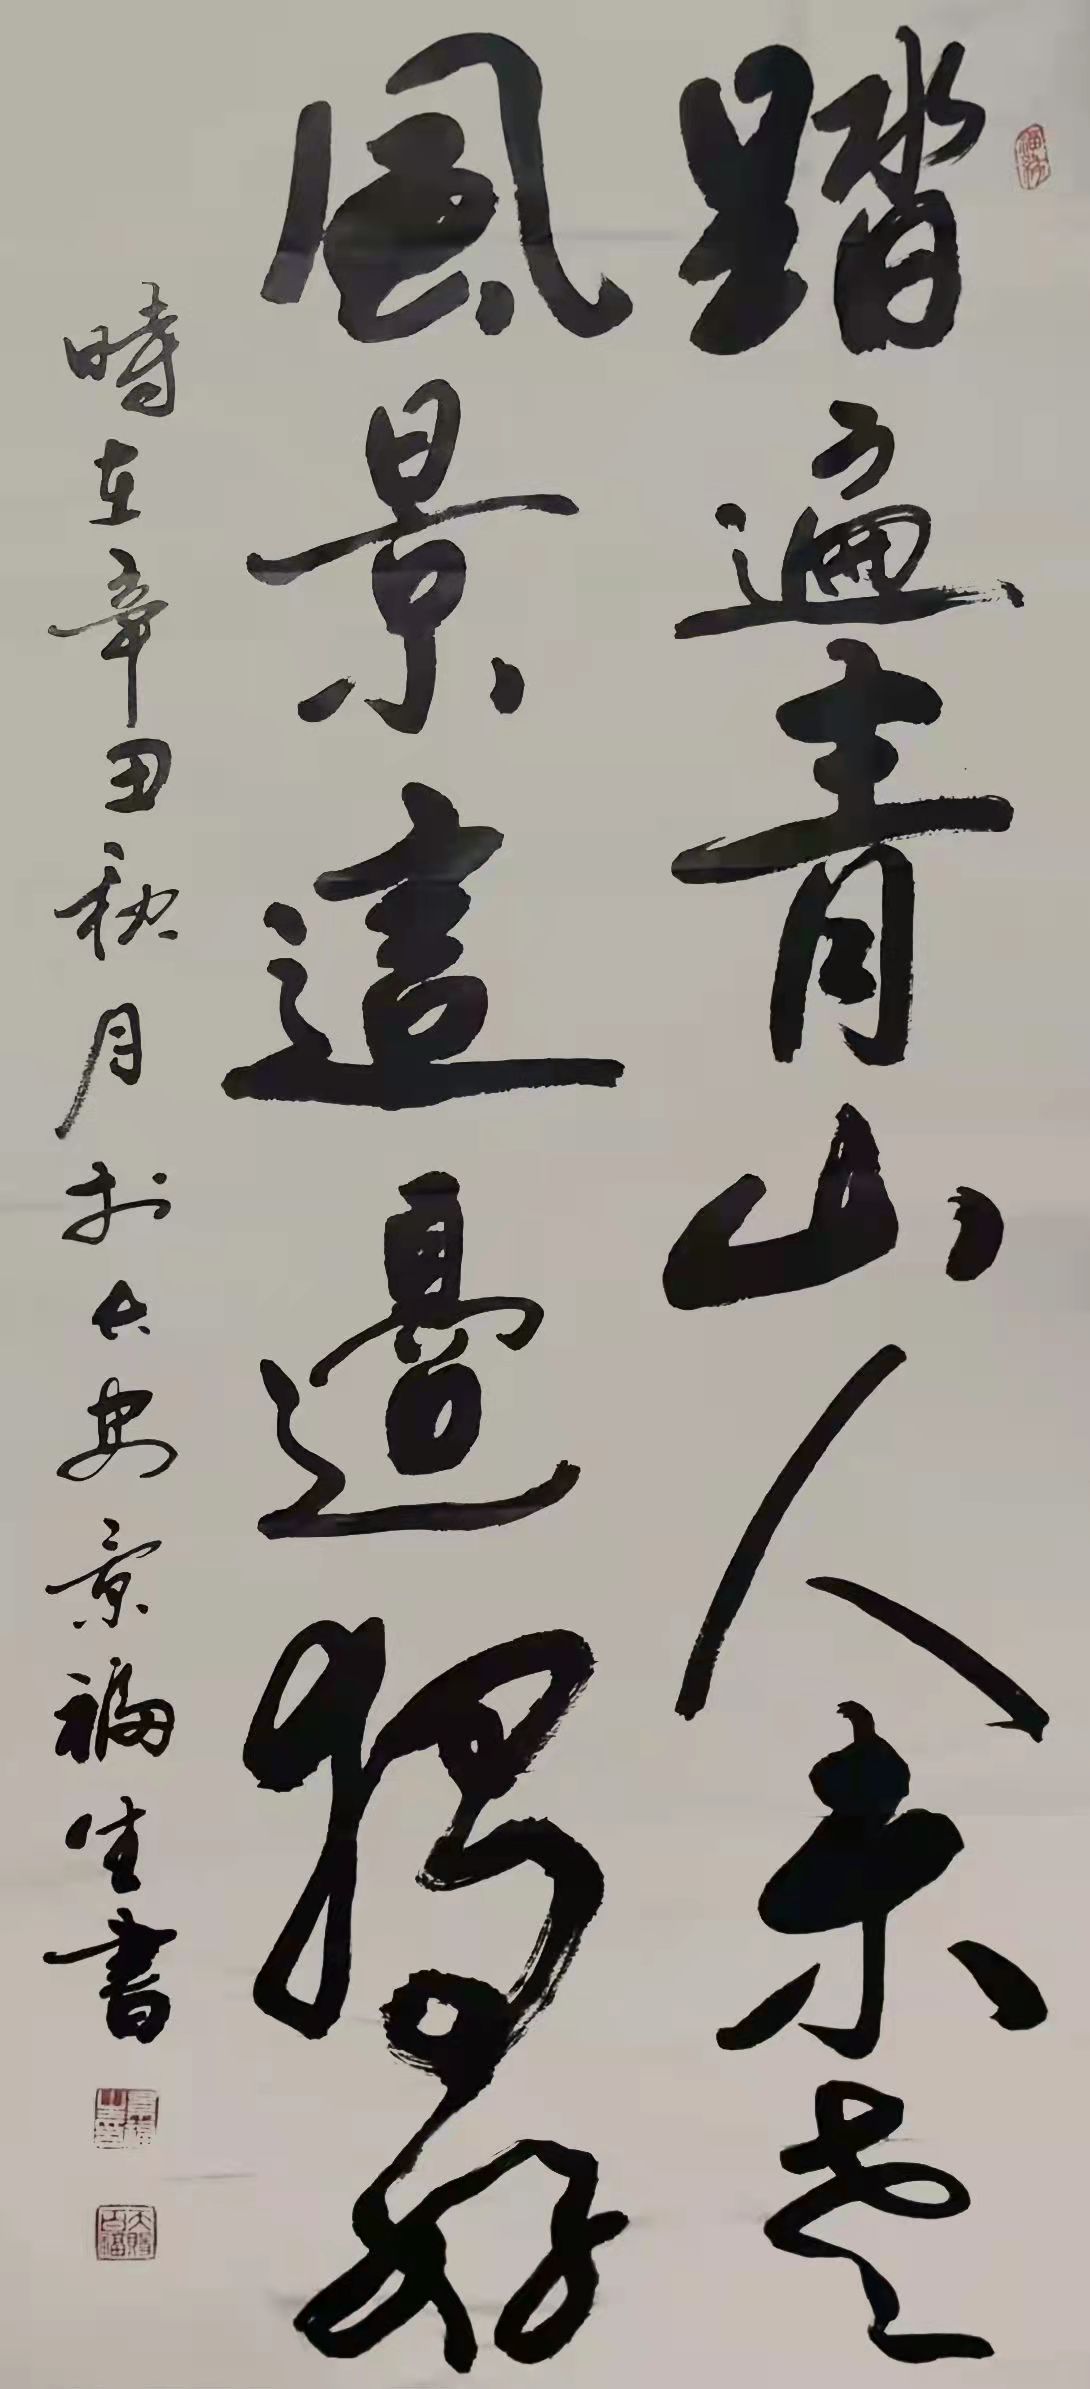 踏遍青山人未老
風景這邊獨好
時在辛丑秋月於长安景福生書